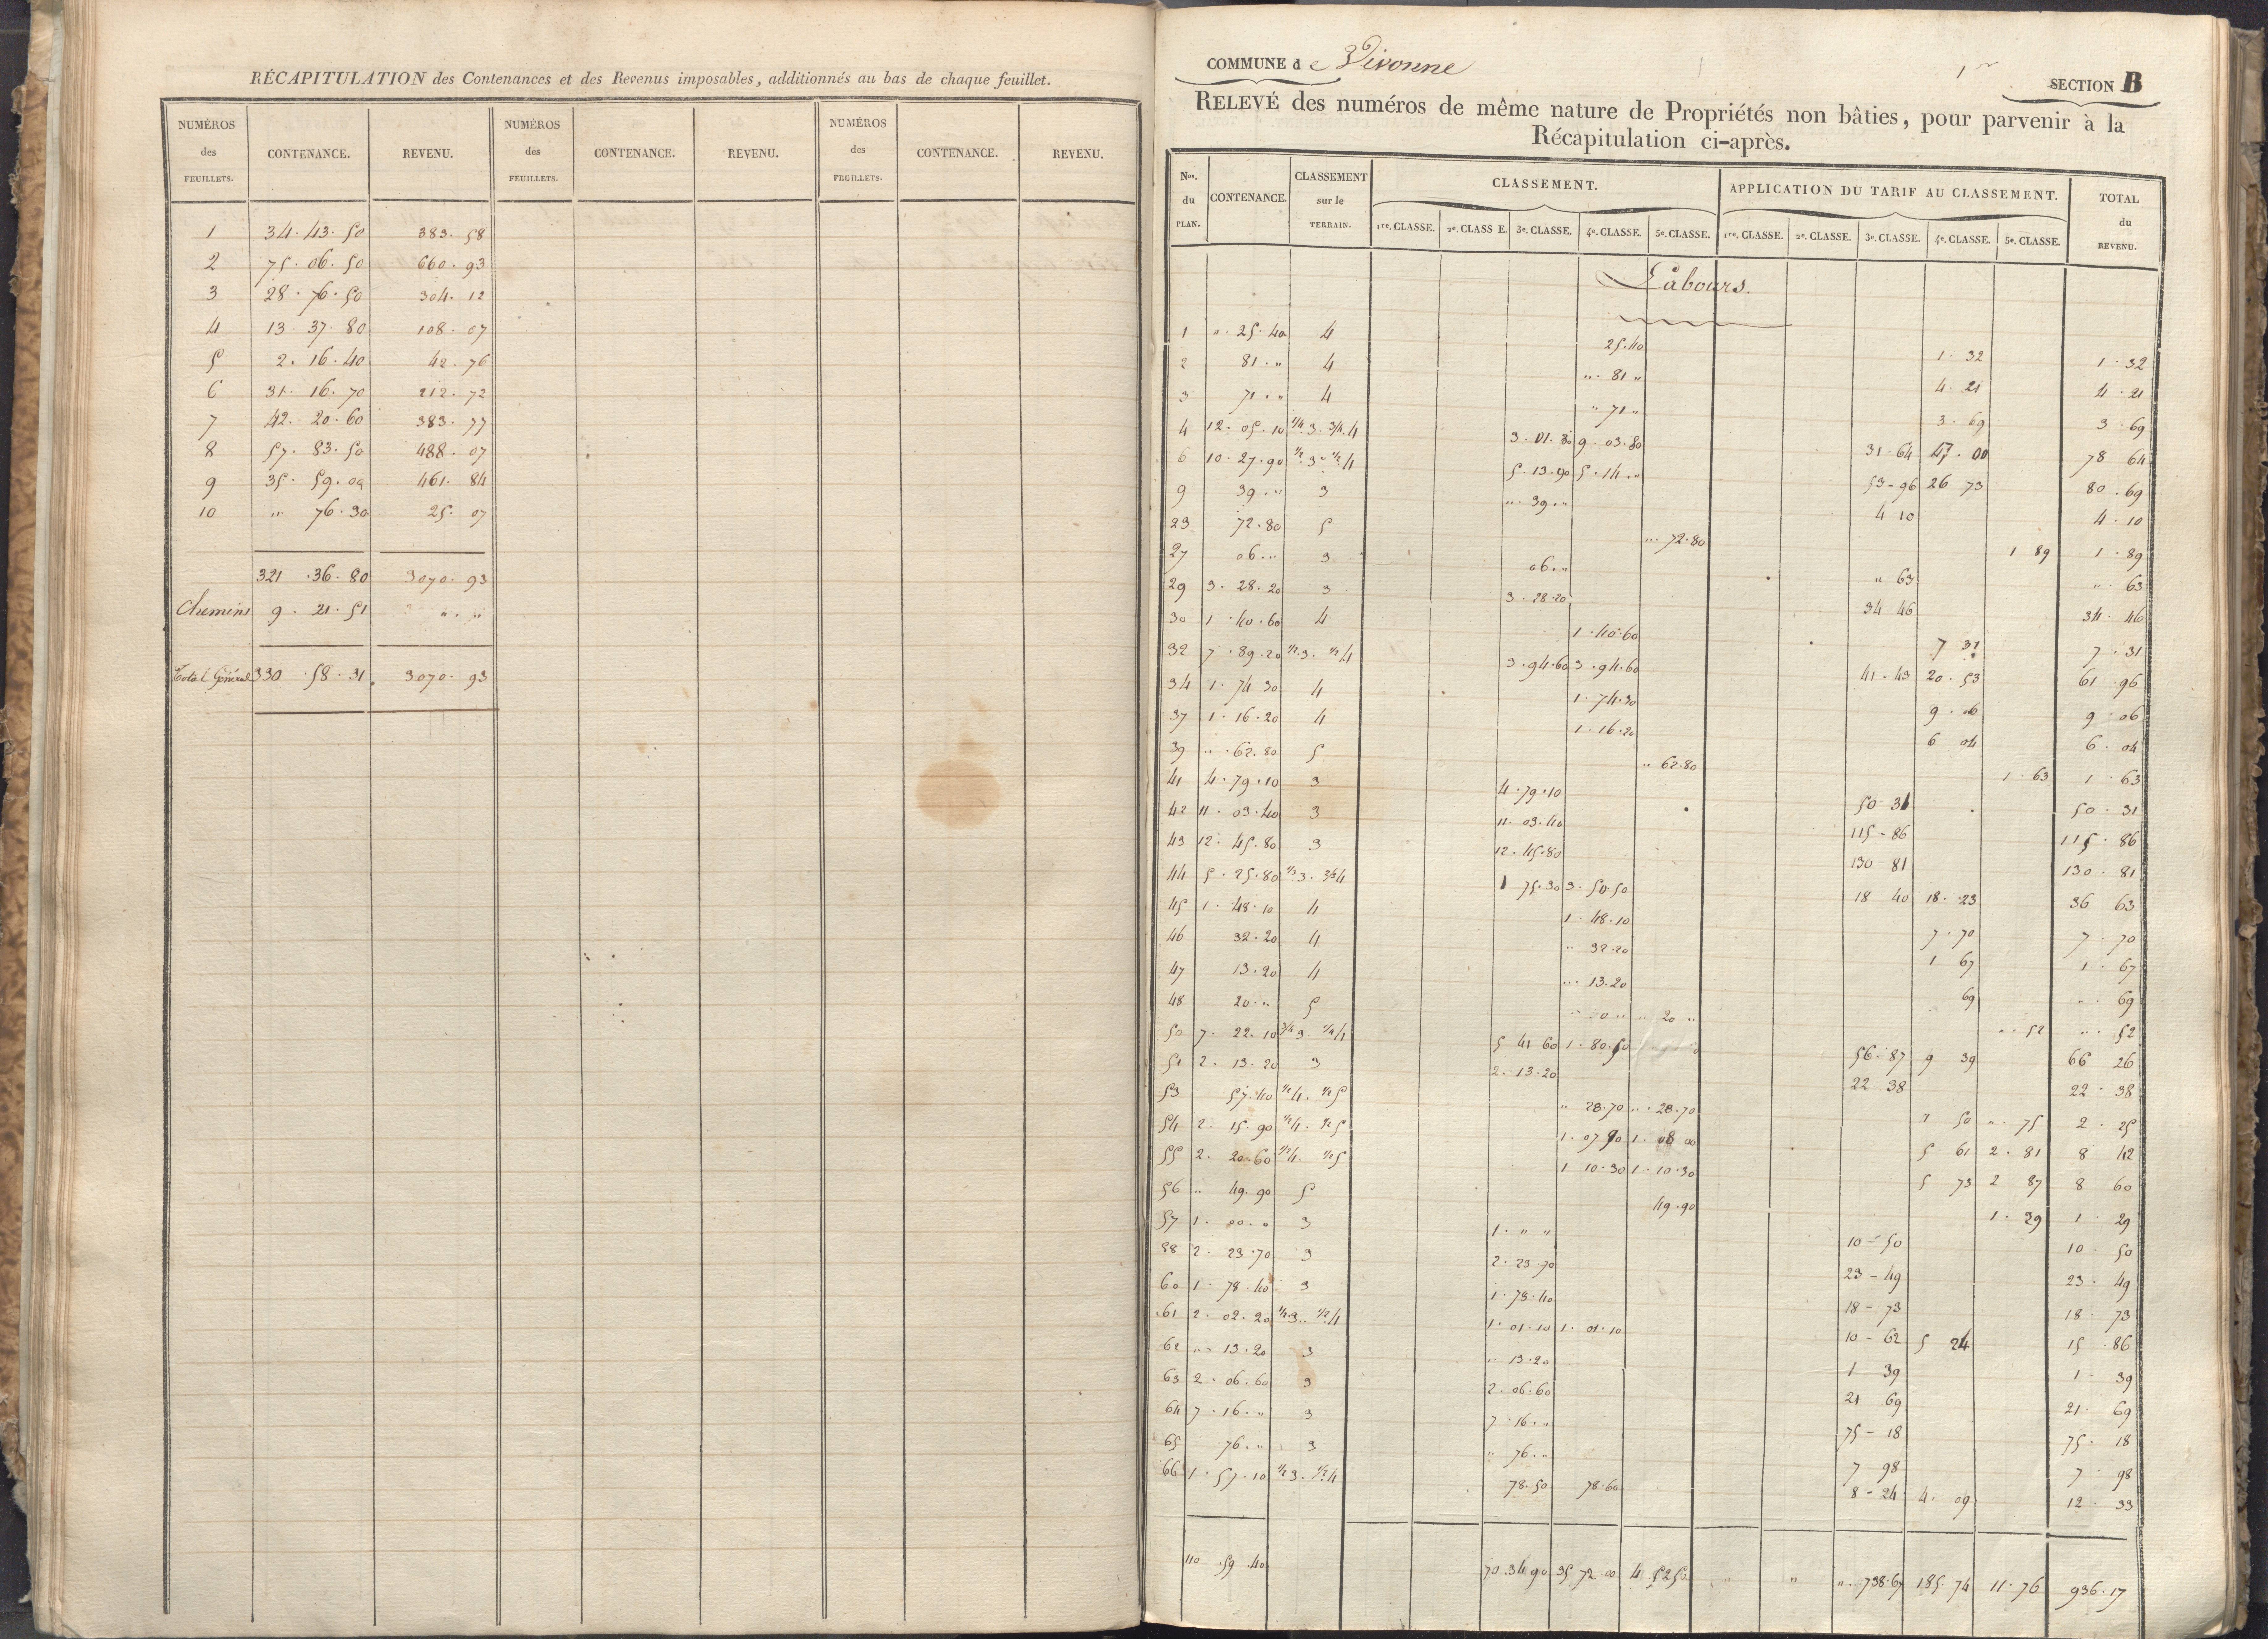 RÉCAPITULATION des Contenances et des Revenus imposables, additionnés au bas de chaque feuillet.
NUMÉROS des FEUILLETS. CONTENANCE. REVENU. NUMÉROS des FEUILLETS. CONTENANCE. REVENU. NUMÉROS des FEUILLETS. CONTENANCE. REVENU.
1 34. 43. 50 383. 58
2 75. 06. 50 660. 93
3 28. 76. 50 304. 12
4 13. 37. 80 108. 07
5 2. 16. 40 42. 76
6 31. 16. 70 212. 72
7 42. 20. 60 383. 77
8 57. 83. 50 488. 07
9 35. 59. 00 461. 84
10 " 76. 30 25. 07
321. 36. 80 3070. 93
Chemins 9. 21. 51 " . "
Total Général 330. 58. 31. 3070. 93
COMMUNE de Vivonne
1re SECTION B
RELEVÉ des numéros de même nature de Propriétés non bâties, pour parvenir à la
Récapitulation ci-après.
Nos. du PLAN. CONTENANCE. CLASSEMENT sur le TERRAIN. CLASSEMENT. APPLICATION DU TARIF AU CLASSEMENT. TOTAL du REVENU.
1re. CLASSE. 2e. CLASSE. 3e. CLASSE. 4e. CLASSE. 5e. CLASSE. 1re. CLASSE. 2e. CLASSE. 3e. CLASSE. 4e. CLASSE. 5e. CLASSE.
Labours.
1 ". 25. 40 4 25. 40 1. 32 1. 32
2 81. " 4 ". 81 " 4. 21 4. 21
3 71. " 4 " 71 " 3. 69 3. 69
4 12. 05. 10 1/4 3. 3/4. 4 3. 01. 30 9. 03. 80 31. 64 47. 00 78 64
6 10. 27. 90 1/2. 3. 1/2 4 5. 13. 90 5. 14. " 53 - 96 26 73 80. 69
9 39. " 3 ". 39. " 4 10 4. 10
23 72. 80 5 ". 72. 80 1 89 1. 89
27 06. " 3 06. " " 63 ". 63
29 3. 28. 20 3 3. 28. 20 34 46 34. 46
30 1. 40. 60 4 1. 40. 60 7 31 7. 31
32 7. 89. 20 1/2. 3. 1/2 4 3. 94. 60 3. 94. 60 41. 43 20. 53 61. 96
34 1. 74 30 4 1. 74. 30 9. 06 9. 06
37 1. 16. 20 4 1. 16. 20 6 04 6. 04
39 ". 62. 80 5 ". 62. 80 1. 63 1. 63
41 4. 79. 10 3 4. 79. 10 50 31 50. 31
42 11. 03. 40 3 11. 03. 40 115 - 86 115. 86
43 12. 45. 80 3 12. 45. 80 130 81 130. 81
44 5. 25. 80 1/3. 3. 2/3 4 1 75. 30 3. 50. 50 18 40 18. 23 36 63
45 1. 48. 10 4 1. 48. 10 7. 70 7. 70
46 32. 20 4 " 32. 20 1 67 1. 67
47 13. 20 4 ". 13. 20 69 ". 69
48 20. " 5 " 20 " ". 52 ". 52
50 7. 22. 10 3/4 3. 1/4 4 5 41 60 1. 80. 50 56. 87 9 39 66 26
51 2. 13. 20 3 2. 13. 20 22 38 22. 38
53 57. 40 1/2 4. 1/2 5 " 28. 70 ". 28. 70 1 50 ". 75 2. 25
54 2. 15. 90 1/2 4. 1/2 5 1. 07 90 1. 08 00 5 61 2. 81 8 42
55 2. 20. 60 1/2 4. 1/2 5 1 10. 30 1. 10. 30 5 73 2 87 8 60
56 " 49. 90 5 49. 90 1. 29 1. 29
57 1. 00. 0 3 1. " " 10 - 50 10. 50
58 2. 23. 70 3 2. 23. 70 23 - 49 23. 49
60 1. 78. 40 3 1. 78. 40 18 - 73 18. 73
61 2. 02. 20 1/2. 3. 1/2. 4 1. 01. 10 1. 01. 10 10 - 62 5 24 15. 86
62 ". 13. 20 3 ". 13. 20 1 39 1. 39
63 2. 06. 60 3 2. 06. 60 21 69 21. 69
64 7. 16. " 3 7. 16. " 75 - 18 75. 18
65 76. " 3 " 76. " 7 98 7. 98
66 1. 57. 10 1/2 3. 1/2. 4 78. 50 78. 60 8 - 24 4. 09 12. 33
110. 59. 40 70. 34 90 35 72. 00 4. 52 50 " " ". 738. 67 185. 74 11. 76 936. 17